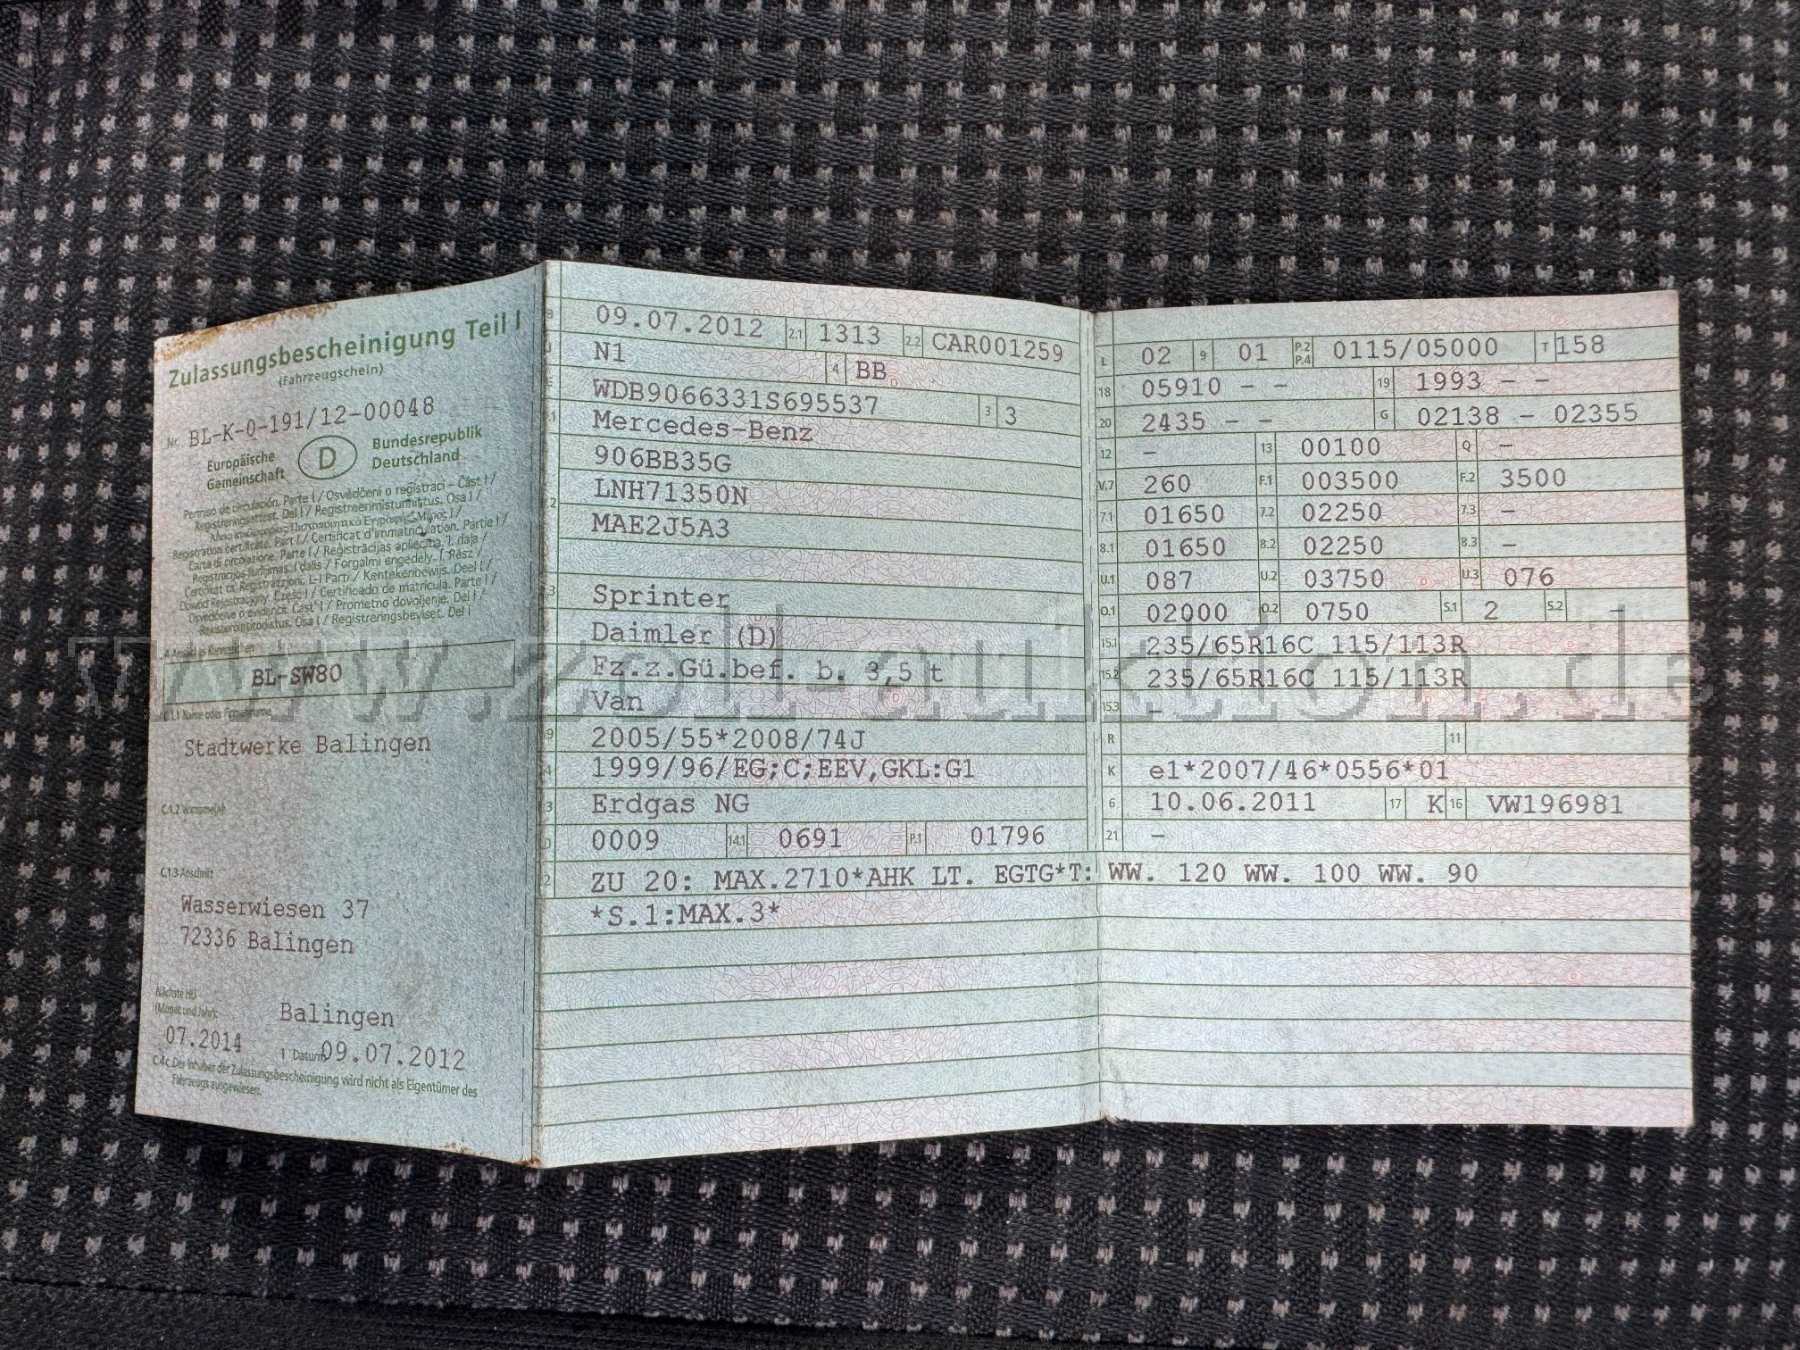 Zulassungsbescheinigung Teil I
(Fahrzeugschein)
Nr. BL-K-0-191/12-00048
Europäische Gemeinschaft
D
Bundesrepublik Deutschland
Permiso de circulación. Parte I / Osvědčení o registraci – Část I /
Registreringsattest. Del I / Registreerimistunnistus. Osa I /
Registration certificate. Part I / Certificat d'immatriculation. Partie I /
Carta di circolazione. Parte I / Reģistrācijas apliecība. I. daļa /
Registracijos liudijimas. I dalis / Forgalmi engedély. I. Rész /
Ċertifikat ta' Reġistrazzjoni. L-I Parti / Kentekenbewijs. Deel I /
Dowód Rejestracyjny. Część I / Certificado de matrícula. Parte I /
Osvedčenie o evidencii. Časť I / Prometno dovoljenje. Del I /
Rekisteröintitodistus. Osa I / Registreringsbeviset. Del I
BL-SW80
C.1.1 Name oder Firmenname
Stadtwerke Balingen
C.1.2 Vorname(n)
C.1.3 Anschrift
Wasserwiesen 37
72336 Balingen
Nächste HU
(Monat und Jahr)
07.2014
Balingen
I Datum 09.07.2012
C.4c Der Inhaber der Zulassungsbescheinigung wird nicht als Eigentümer des
Fahrzeugs ausgewiesen.
B 09.07.2012 2.1 1313 2.2 CAR001259
J N1 4 BB
E WDB9066331S695537 3 3
D.1 Mercedes-Benz
906BB35G
D.2 LNH71350N
MAE2J5A3
D.3 Sprinter
Daimler (D)
Fz.z.Gü.bef. b. 3,5 t
Van
V.9 2005/55*2008/74J
14 1999/96/EG;C;EEV,GKL:G1
P.3 Erdgas NG
10 0009 14.1 0691 P.1 01796
22 ZU 20: MAX.2710*AHK LT. EGTG*T: WW. 120 WW. 100 WW. 90
*S.1:MAX.3*
L 02 9 01 P.2 P.4 0115/05000 T 158
18 05910 - - 19 1993 - -
20 2435 - - G 02138 - 02355
12 - 13 00100 Q -
V.7 260 F.1 003500 F.2 3500
7.1 01650 7.2 02250 7.3 -
8.1 01650 8.2 02250 8.3 -
U.1 087 U.2 03750 U.3 076
O.1 02000 O.2 0750 S.1 2 S.2 -
15.1 235/65R16C 115/113R
15.2 235/65R16C 115/113R
15.3 -
R 11
K e1*2007/46*0556*01
6 10.06.2011 17 K 16 VW196981
21 -
www.zoll-auktion.de